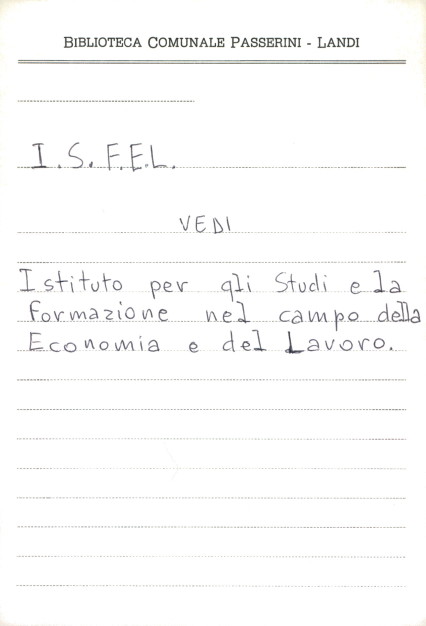 BIBLIOTECA COMUNALE PASSERINI - LANDI
I.S.F.E.L.
VEDI
Istituto per gli Studi e la
formazione nel campo della
Economia e del Lavoro.